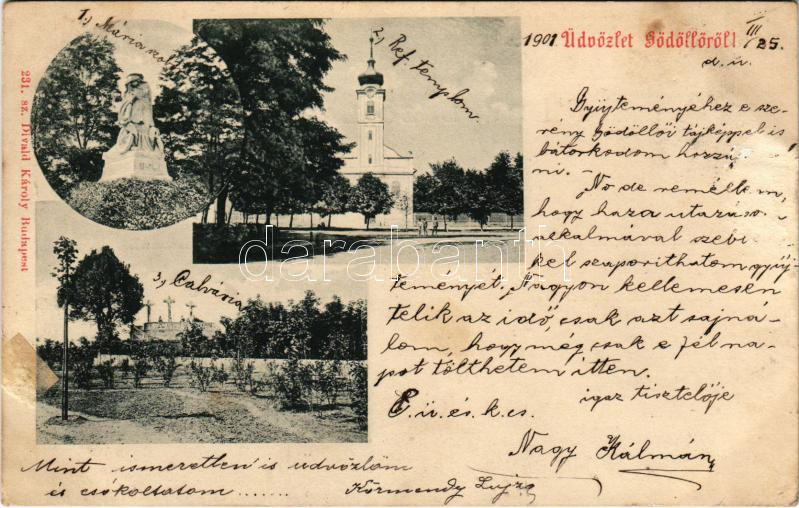 1901 Üdvözlet Gödöllőről! III/25.
d. u.
1., Mária szob
2., Ref. templom.
3., Calvária
231. sz. Divald Károly Budapest
Gyüjteményéhez e sze-
rény Gödöllői tájképpel is
bátorkodom hozzá
ni.
No de remélem,
hogy haza utazás
alkalmával szebb
kel szaporithatom gyüj-
teményét. Nagyon kellemesen
telik az idő, csak azt sajná-
lom, hogy még csak e fél na-
pot tölthetem itten.
igaz tisztelője
E. ü. és. k. cs.
Nagy Kálmán
Mint ismeretlen is üdvözlöm
és csókoltatom .......
Körmendy Lujza
darabanth